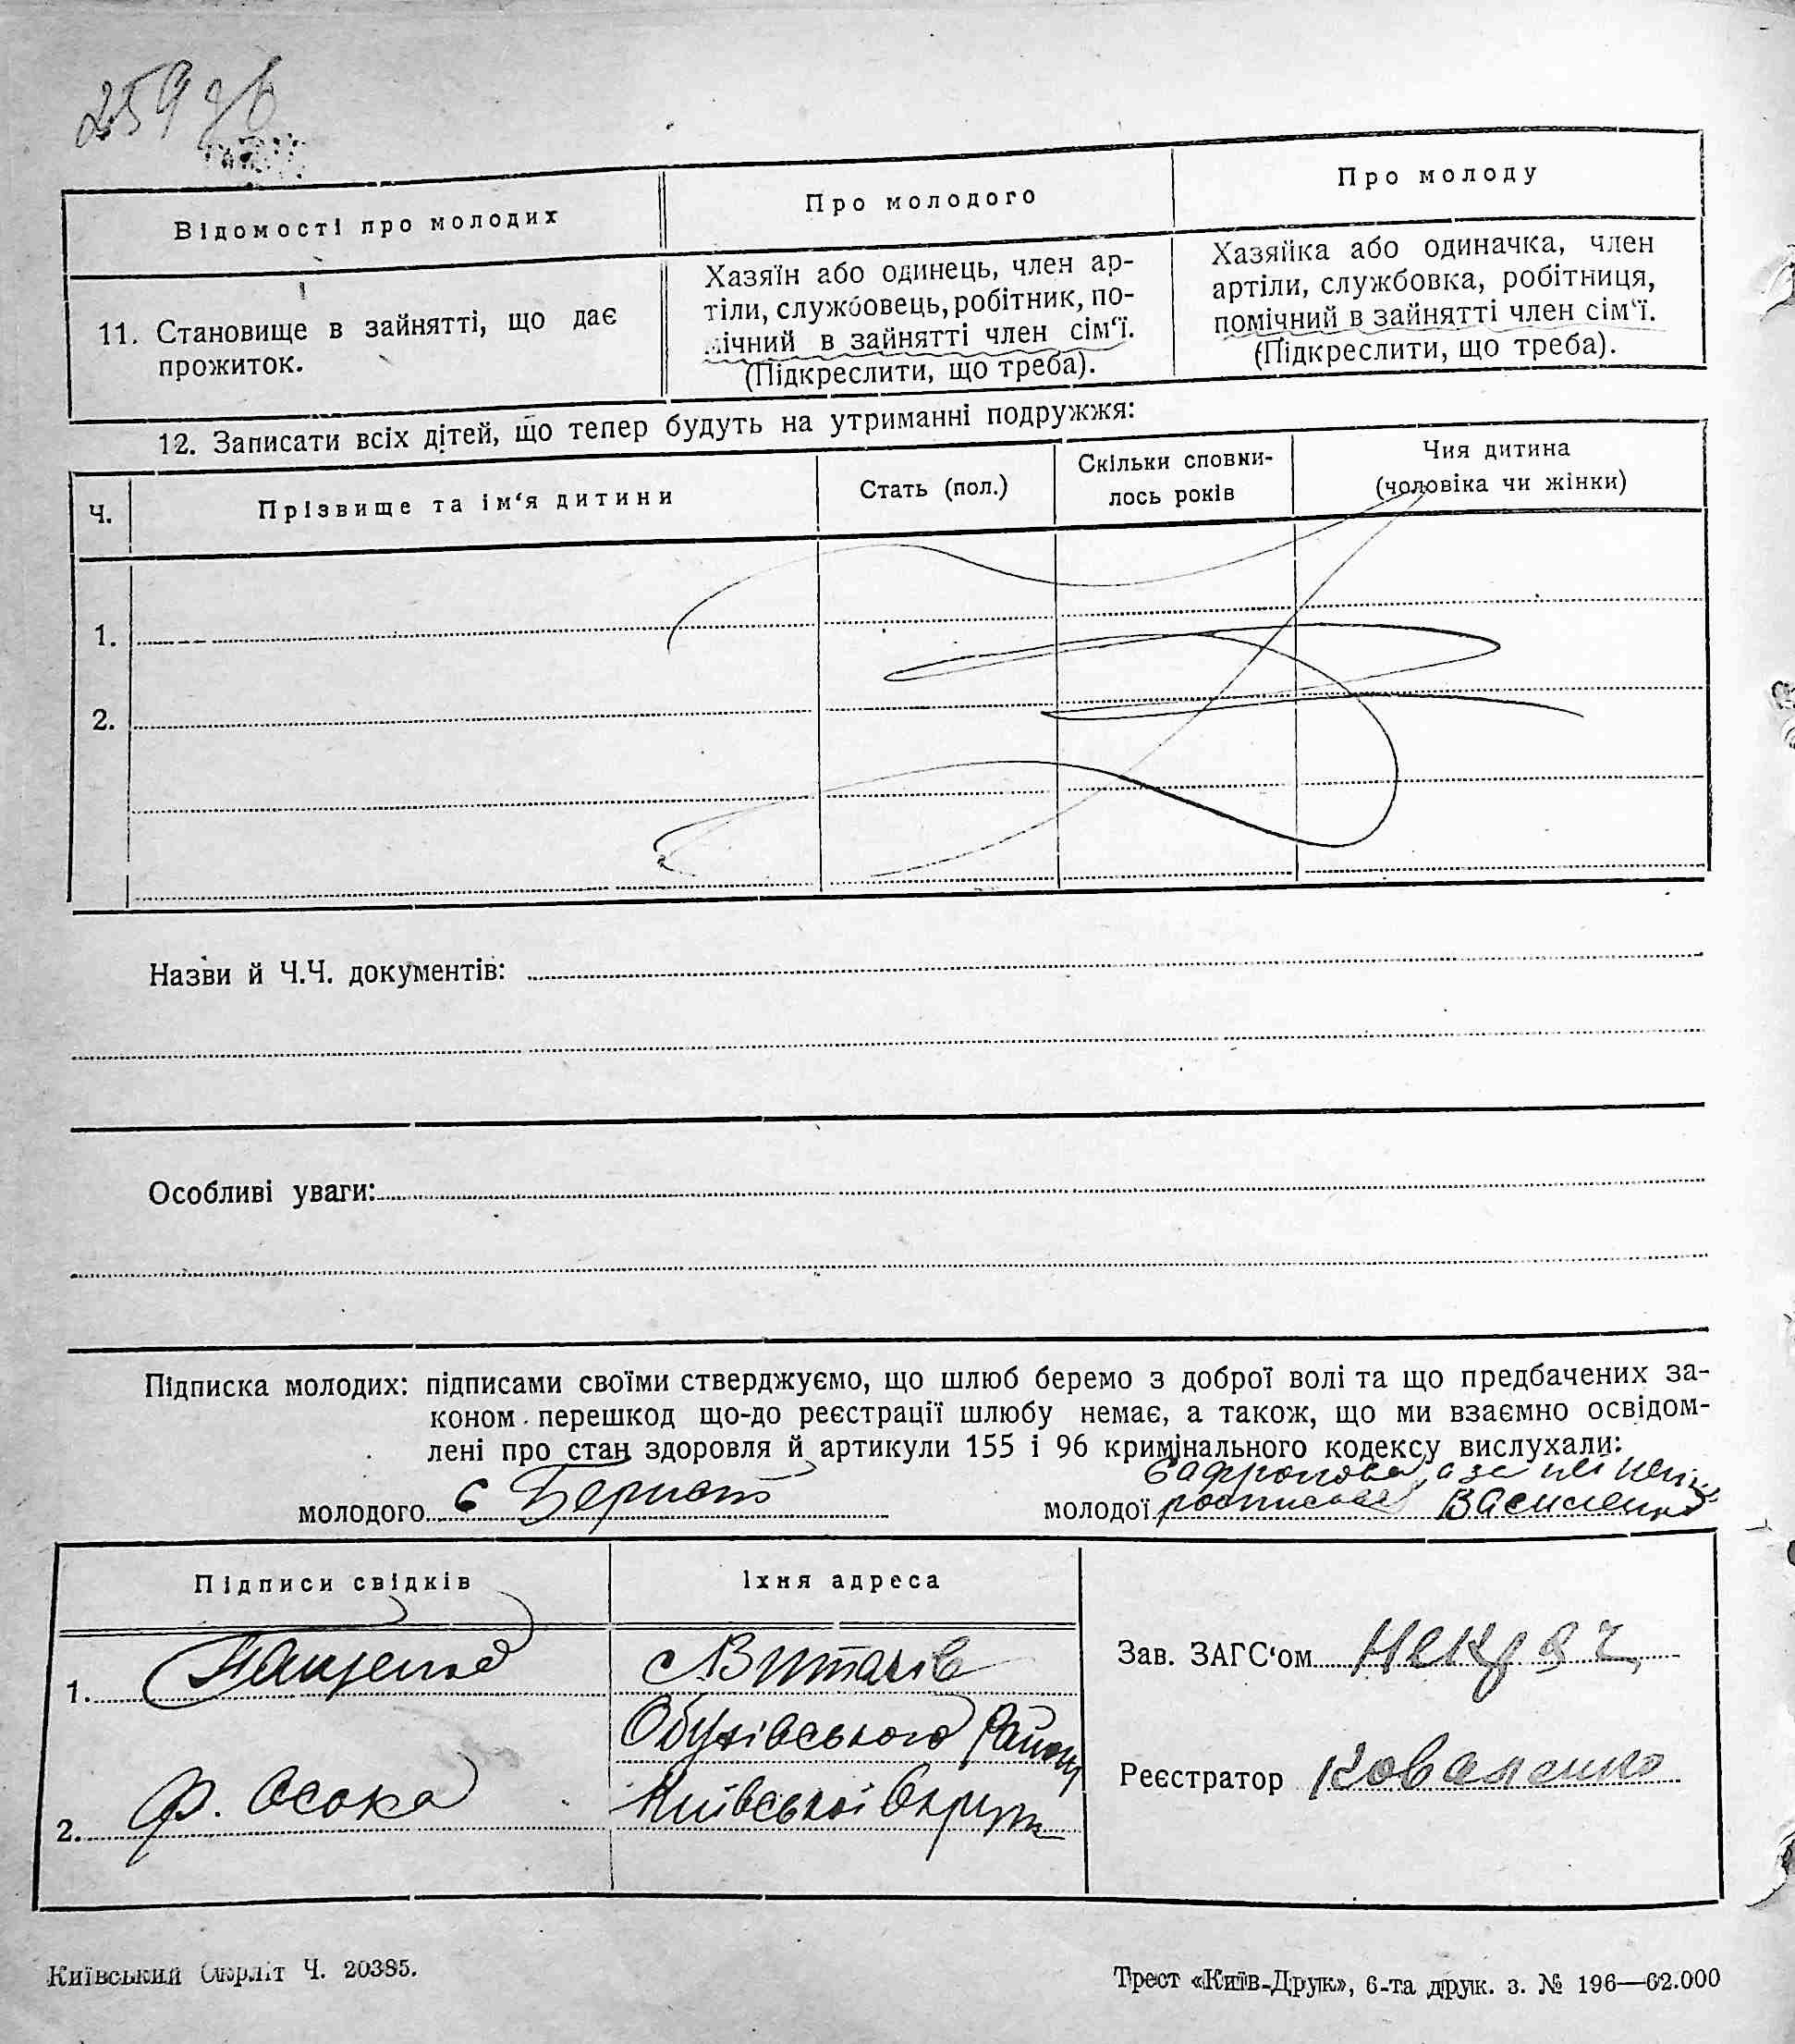 259 зв
Відомості про молодих
Про молодого
Про молоду
11. Становище в зайнятті, що дає
прожиток.
Хазяїн або одинець, член ар-
тіли, службовець, робітник, по-
мічний в зайнятті член сім‘ї.
(Підкреслити, що треба).
Хазяйка або одиначка, член
артіли, службовка, робітниця,
помічний в зайнятті член сім‘ї.
(Підкреслити, що треба).
12. Записати всіх дітей, що тепер будуть на утриманні подружжя:
Ч.
Прізвище та ім‘я дитини
Стать (пол.)
Скільки сповни-
лось років
Чия дитина
(чоловіка чи жінки)
1.
2.
Назви й Ч.Ч. документів:
Особливі уваги:
Підписка молодих: підписами своїми стверджуємо, що шлюб беремо з доброї волі та що предбачених за-
коном перешкод що-до реєстрації шлюбу немає, а також, що ми взаємно освідом-
лені про стан здоровля й артикули 155 і 96 кримінального кодексу вислухали:
молодого
молодої Сафронова, а за
Василенко
Підписи свідків
Їхня адреса
1.
с Витачів
Обухівського району
2. Ф. Осока
Київської Округи
Зав. ЗАГС‘ом
Реєстратор Коваленко
Київський Окрліт Ч. 20385.
Трест «Київ-Друк», 6-та друк. з. № 196—62.000